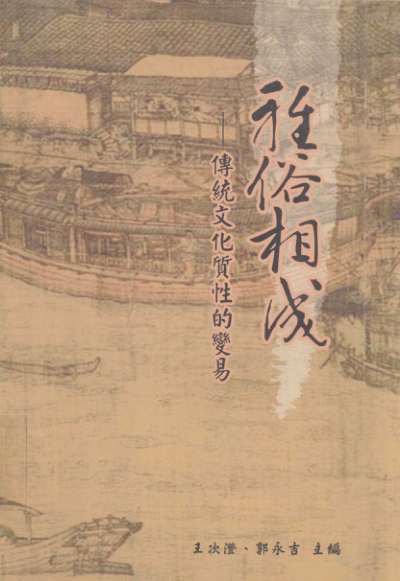 雅俗相成
——傳統文化質性的變易
王次澄、郭永吉 主編